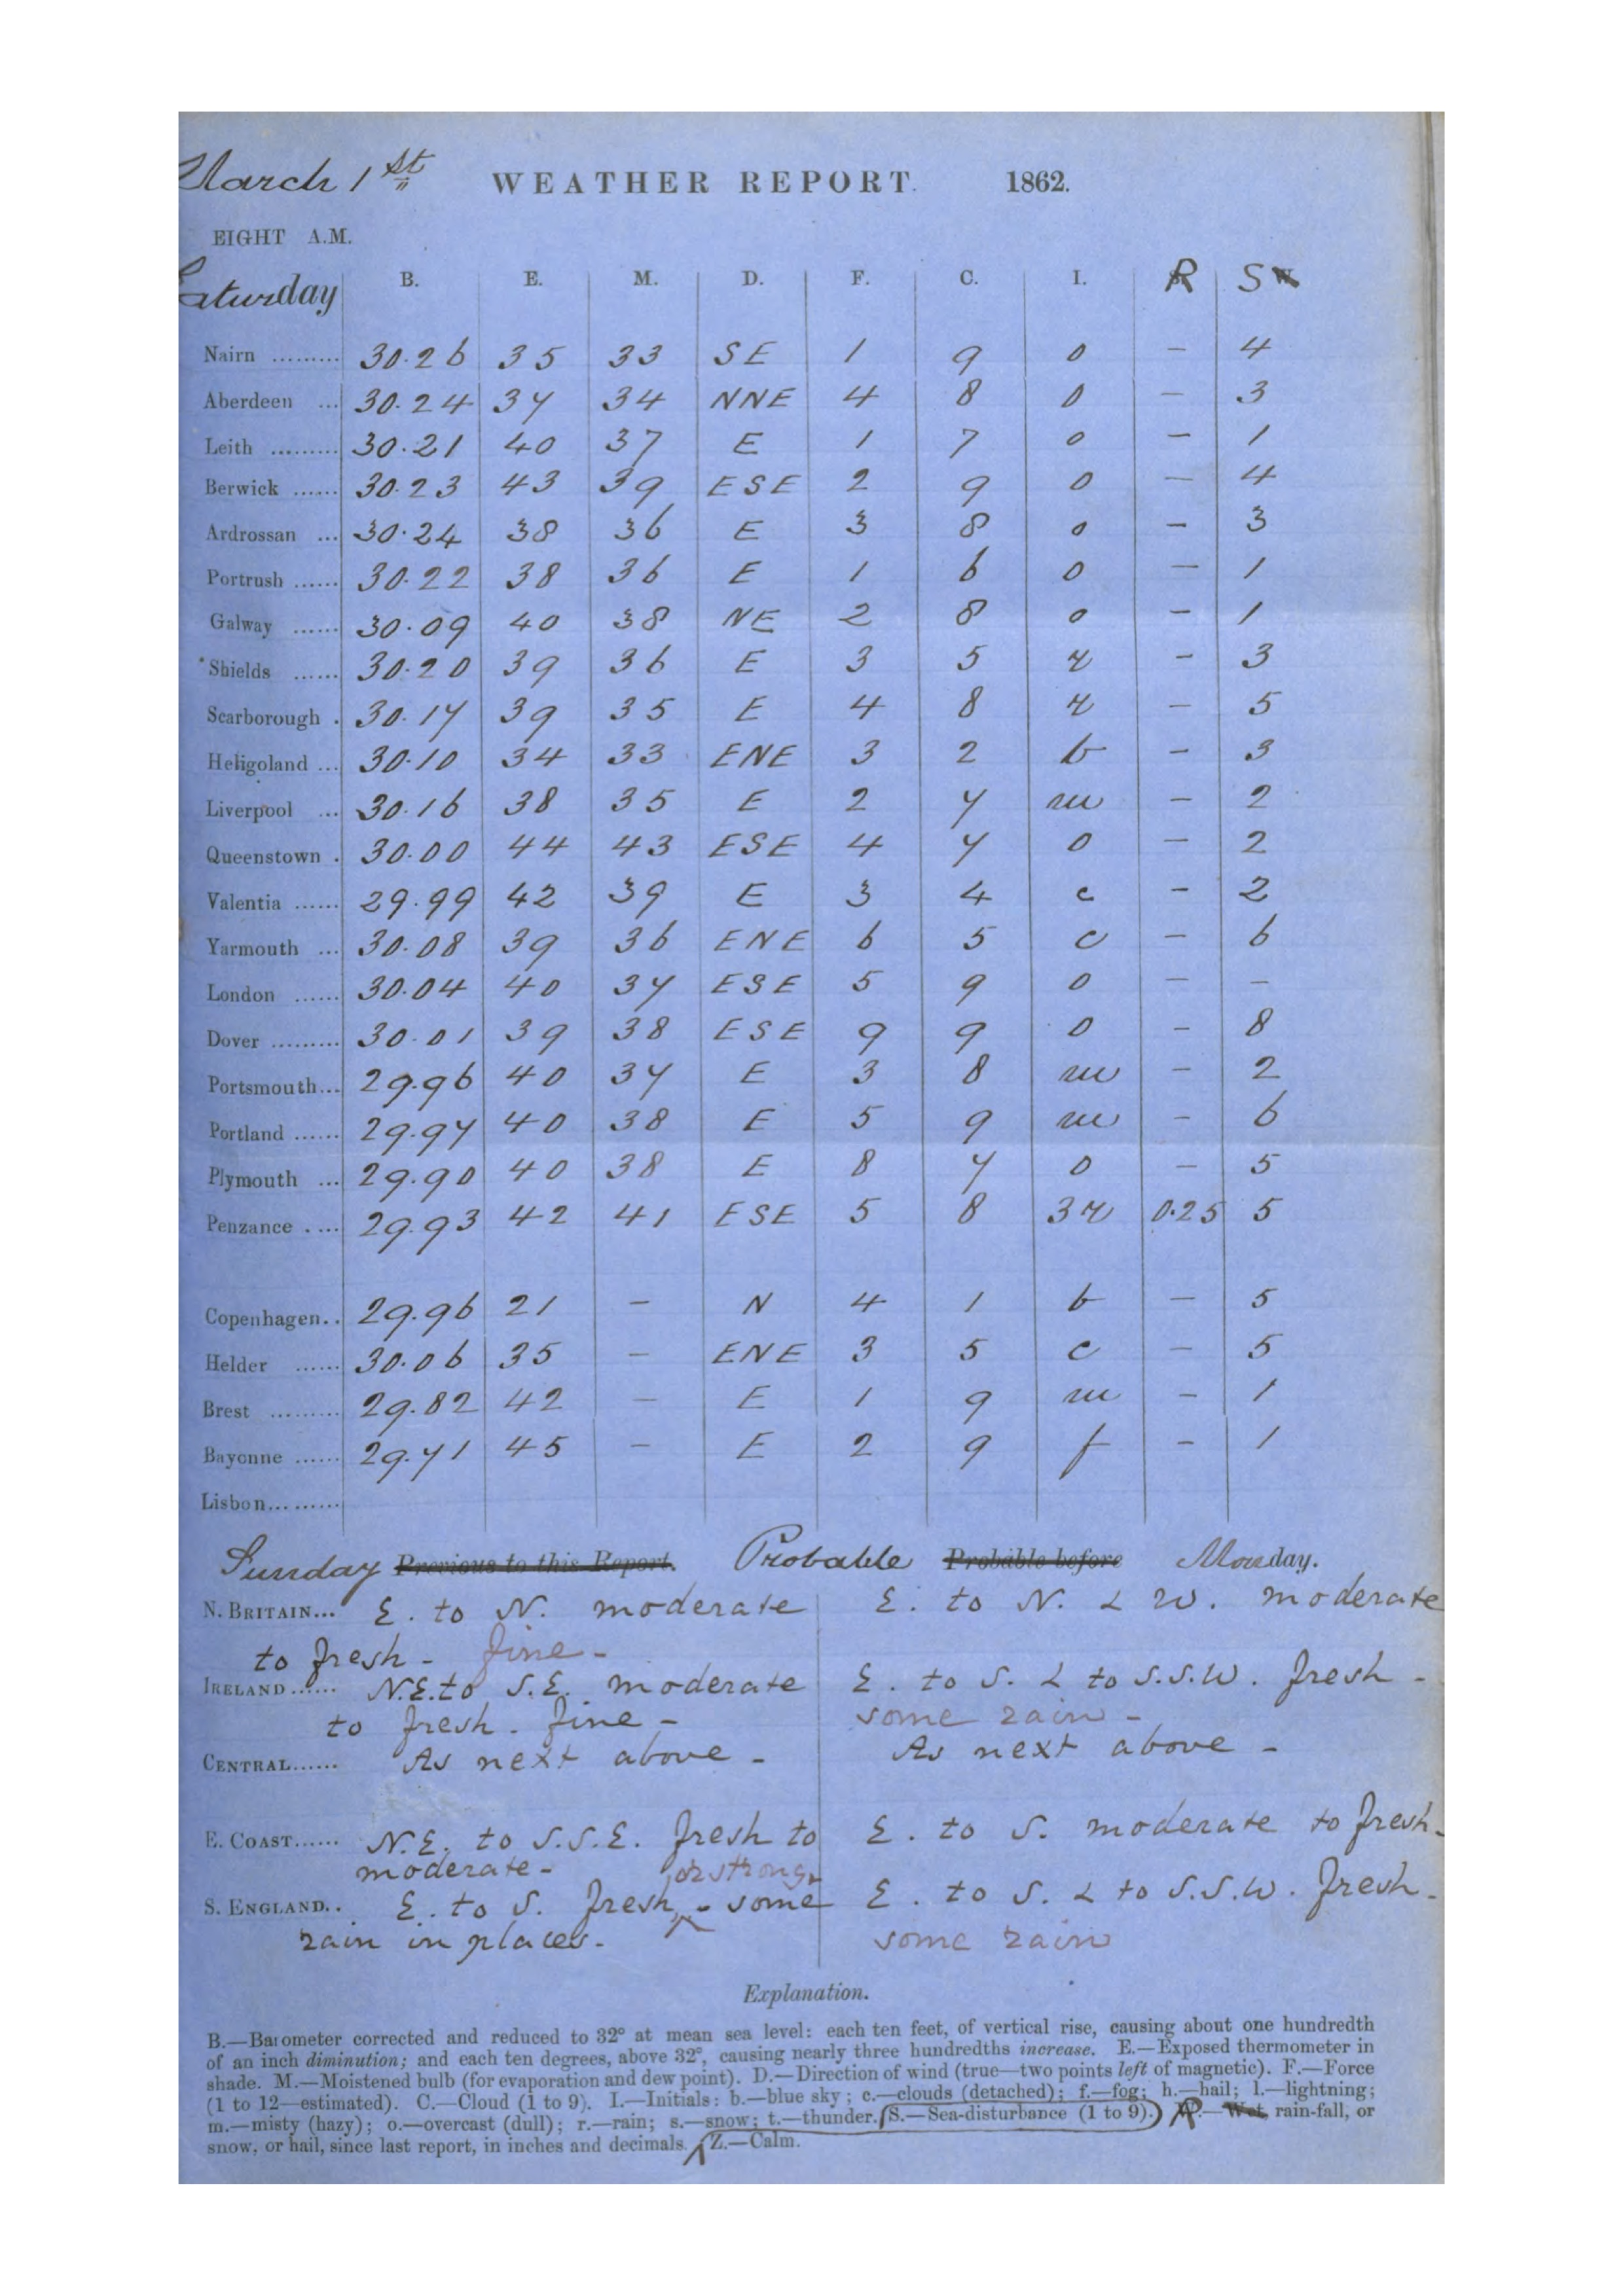 March 1st WEATHER REPORT. 1862.
EIGHT A.M.
Saturday B. E. M. D. F. C. I. R S
Nairn ......... 30.26 35 33 SE 1 9 o – 4
Aberdeen ... 30.24 37 34 NNE 4 8 o – 3
Leith ......... 30.21 40 37 E 1 7 o – 1
Berwick ...... 30.23 43 39 ESE 2 9 o – 4
Ardrossan ... 30.24 38 36 E 3 8 o – 3
Portrush ...... 30.22 38 36 E 1 6 o – 1
Galway ...... 30.09 40 38 NE 2 8 o – 1
Shields ...... 30.20 39 36 E 3 5 r – 3
Scarborough . 30.17 39 35 E 4 8 r – 5
Heligoland ... 30.10 34 33 ENE 3 2 b – 3
Liverpool ... 30.16 38 35 E 2 7 m – 2
Queenstown . 30.00 44 43 ESE 4 7 o – 2
Valentia ...... 29.99 42 39 E 3 4 c – 2
Yarmouth ... 30.08 39 36 ENE 6 5 c – 6
London ...... 30.04 40 37 ESE 5 9 o – –
Dover ......... 30.01 39 38 ESE 9 9 o – 8
Portsmouth... 29.96 40 37 E 3 8 m – 2
Portland ...... 29.97 40 38 E 5 9 m – 6
Plymouth ... 29.90 40 38 E 8 7 o – 5
Penzance . ... 29.93 42 41 ESE 5 8 3r 0.25 5
Copenhagen.. 29.96 21 – N 4 1 b – 5
Helder ...... 30.06 35 – ENE 3 5 c – 5
Brest ......... 29.82 42 – E 1 9 m – 1
Bayonne ...... 29.71 45 – E 2 9 f – 1
Lisbon.........
Sunday Previous to this Report. Probable Probable before Monday.
N. BRITAIN... E. to N. moderate E. to N. & W. moderate
to fresh - fine -
IRELAND...... N.E. to S.E. moderate E. to S. & to S.S.W. fresh -
to fresh. fine - some rain -
CENTRAL...... As next above - As next above -
E. COAST...... N.E. to S.S.E. fresh to E. to S. moderate to fresh -
moderate - or strong
S. ENGLAND.. E. to S. fresh, - some E. to S. & to S.S.W. fresh -
rain in places - some rain
Explanation.
B.—Barometer corrected and reduced to 32° at mean sea level: each ten feet, of vertical rise, causing about one hundredth
of an inch diminution; and each ten degrees, above 32°, causing nearly three hundredths increase. E.—Exposed thermometer in
shade. M.—Moistened bulb (for evaporation and dew point). D.—Direction of wind (true—two points left of magnetic). F.—Force
(1 to 12—estimated). C.—Cloud (1 to 9). I.—Initials: b.—blue sky; c.—clouds (detached); f.—fog; h.—hail; l.—lightning;
m.—misty (hazy); o.—overcast (dull); r.—rain; s.—snow; t.—thunder. S.—Sea-disturbance (1 to 9). R.— Wet, rain-fall, or
snow, or hail, since last report, in inches and decimals. Z.—Calm.